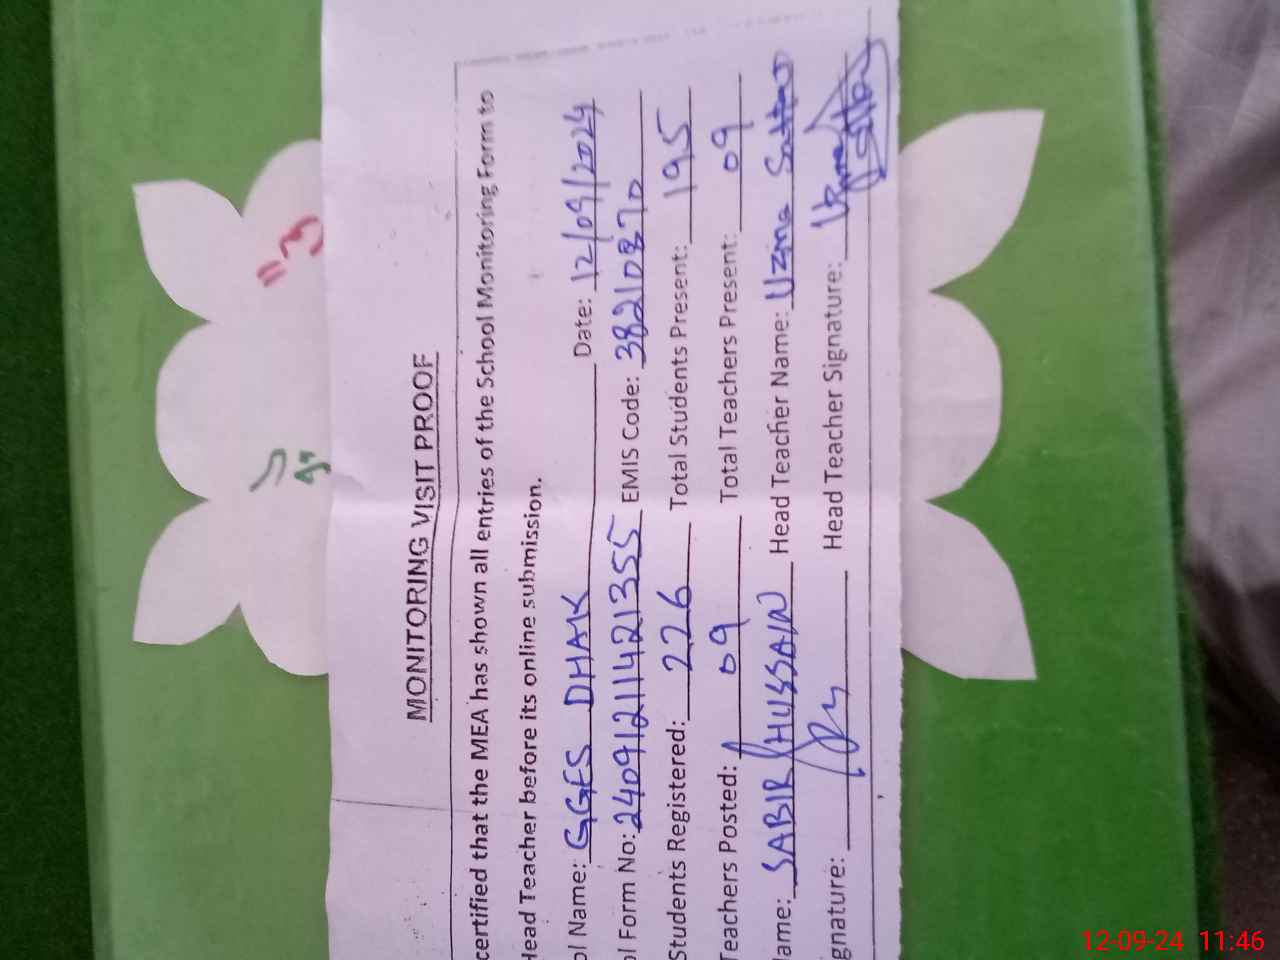 MONITORING VISIT PROOF
certified that the MEA has shown all entries of the School Monitoring Form to
Head Teacher before its online submission.
ol Name: GGES DHAK Date: 12/09/2024
l Form No: 24091211421355 EMIS Code: 38210870
Students Registered: 226 Total Students Present: 195
Teachers Posted: 09 Total Teachers Present: 09
Name: SABIR HUSSAIN Head Teacher Name: Uzma Sattar
gnature: Head Teacher Signature: Uzma Sattar
12-09-24 11:46